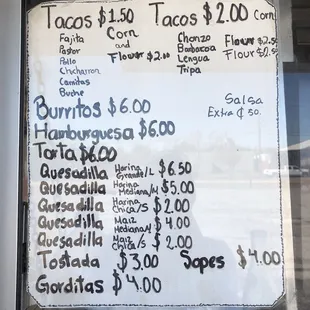 Tacos $1.50
Fajita
Pastor
Pollo
Chicharron
Carnitas
Buche
Corn
and
Flower $2.00
Tacos $2.00 Corn
Chorizo
Barbacoa
Lengua
Tripa
Flower $2.5
Flour $2.5
Salsa
Extra ¢ 50.
Burritos $6.00
Hamburguesa $6.00
Torta $6.00
Quesadilla Harina Grande/L $6.50
Quesadilla Harina Mediana/M $5.00
Quesadilla Harina Chica/S $2.00
Quesadilla Maiz Mediana/M $4.00
Quesadilla Maiz Chica/S $2.00
Tostada $3.00
Sopes $4.00
Gorditas $4.00